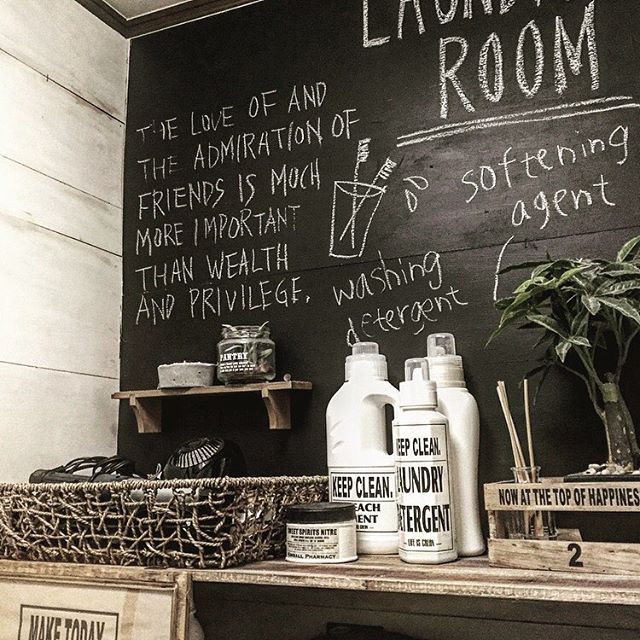 ROOM
THE LOVE OF AND
THE ADMIRATION OF
FRIENDS IS MUCH
MORE IMPORTANT
THAN WEALTH
AND PRIVILEGE.
softening
agent
washing
detergent
PANTRY
KEEP CLEAN.
KEEP CLEAN.
LAUNDRY
DETERGENT
LIFE IS COLOR
SWEET SPIRITS NITRE
PHARMACY
NOW AT THE TOP OF HAPPINES
2
MAKE TODAY